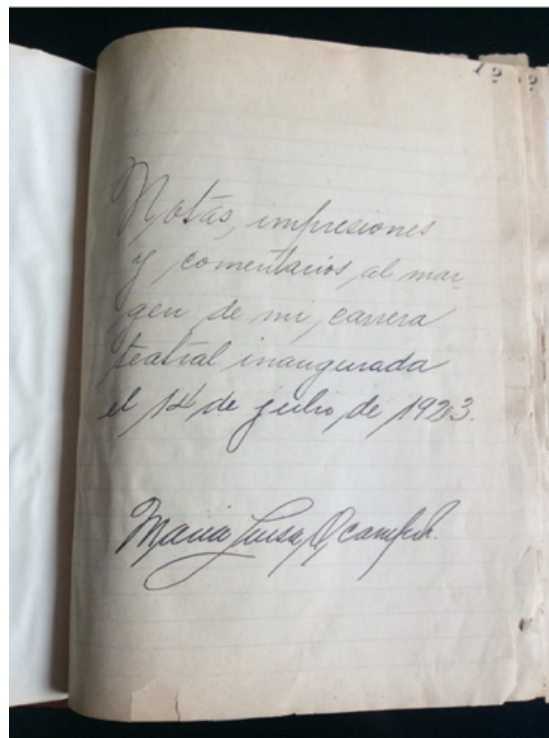 12
Notas, impresiones
y comentarios, al mar-
gen de mi carrera
teatral inaugurada
el 14 de julio de 1923.
Maria Luisa Ocampo.